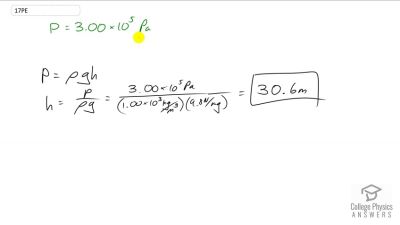 17PE
P = 3.00 × 10⁵ Pa
P = ρgh
h = P/ρg = 3.00 × 10⁵ Pa / (1.00 × 10³ kg/m³)(9.8 N/kg) = 30.6m
College Physics
ANSWERS